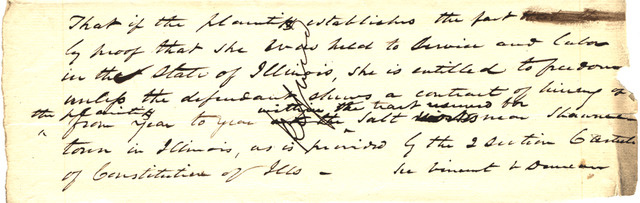 That if the plaintiff establishes the fact
by proof that she was held to service and labor
in the State of Illinois, she is entitled to freedom
unless the defendant shows a contract of hireing of
the plaintiff within the tract reserved for
from year to year at the Salt works near Shawnee
town in Illinois, as is provided by the 2 Section 6 Article
of Constitution of Ills - See Vincent v Duncan
Refused